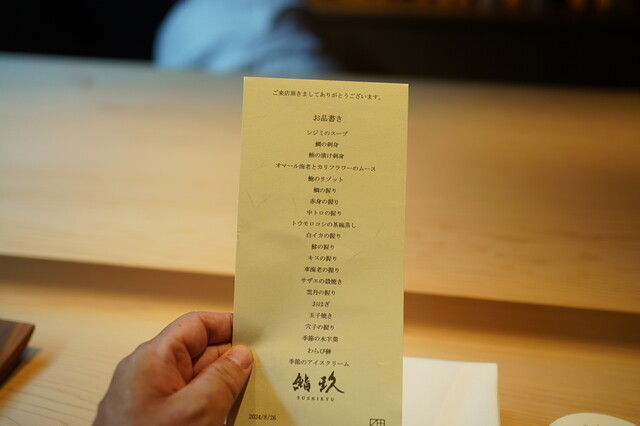 ご来店頂きましてありがとうございます。
お品書き
シジミのスープ
鯛の刺身
鮪の漬け刺身
オマール海老とカリフラワーのムース
鮑のリゾット
鯛の握り
赤身の握り
中トロの握り
トウモロコシの茶碗蒸し
白イカの握り
鯵の握り
キスの握り
車海老の握り
サザエの殻焼き
雲丹の握り
おはぎ
玉子焼き
穴子の握り
季節の水羊羹
わらび餅
季節のアイスクリーム
鮨 玖
SUSHIKYU
2024/6/26